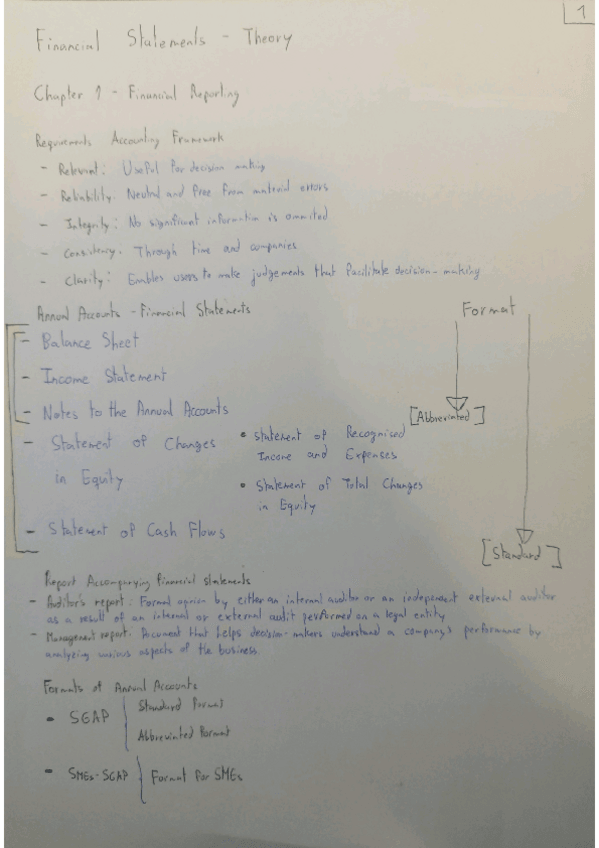 1
Financial Statements - Theory
Chapter 1 - Financial Reporting
Requirements Accounting Framework
- Relevant: Useful for decision making
- Reliability. Neutral and free from material errors
- Integrity: No significant information is ommited
- Consistency. Through time and companies
- Clarity: Enables users to make judgements that facilitate decision-making
Annual Accounts - Financial Statements
Format
- Balance Sheet
- Income Statement
- Notes to the Annual Accounts
[Abbreviated]
- Statement of Changes
in Equity
• Statement of Recognised
Income and Expenses
• Statement of Total Changes
in Equity
- Statement of Cash Flows
[Standard]
Report Accompanying financial statements
- Auditor's report: Formal opinion by either an internal auditor or an independent external auditor
as a result of an internal or external audit performed on a legal entity
- Management report: Document that helps decision-makers understand a company's performance by
analyzing various aspects of the business.
Formats of Annual Accounts
- SGAP
Standard Format
Abbreviated Format
- SMEs-SGAP Format for SMEs